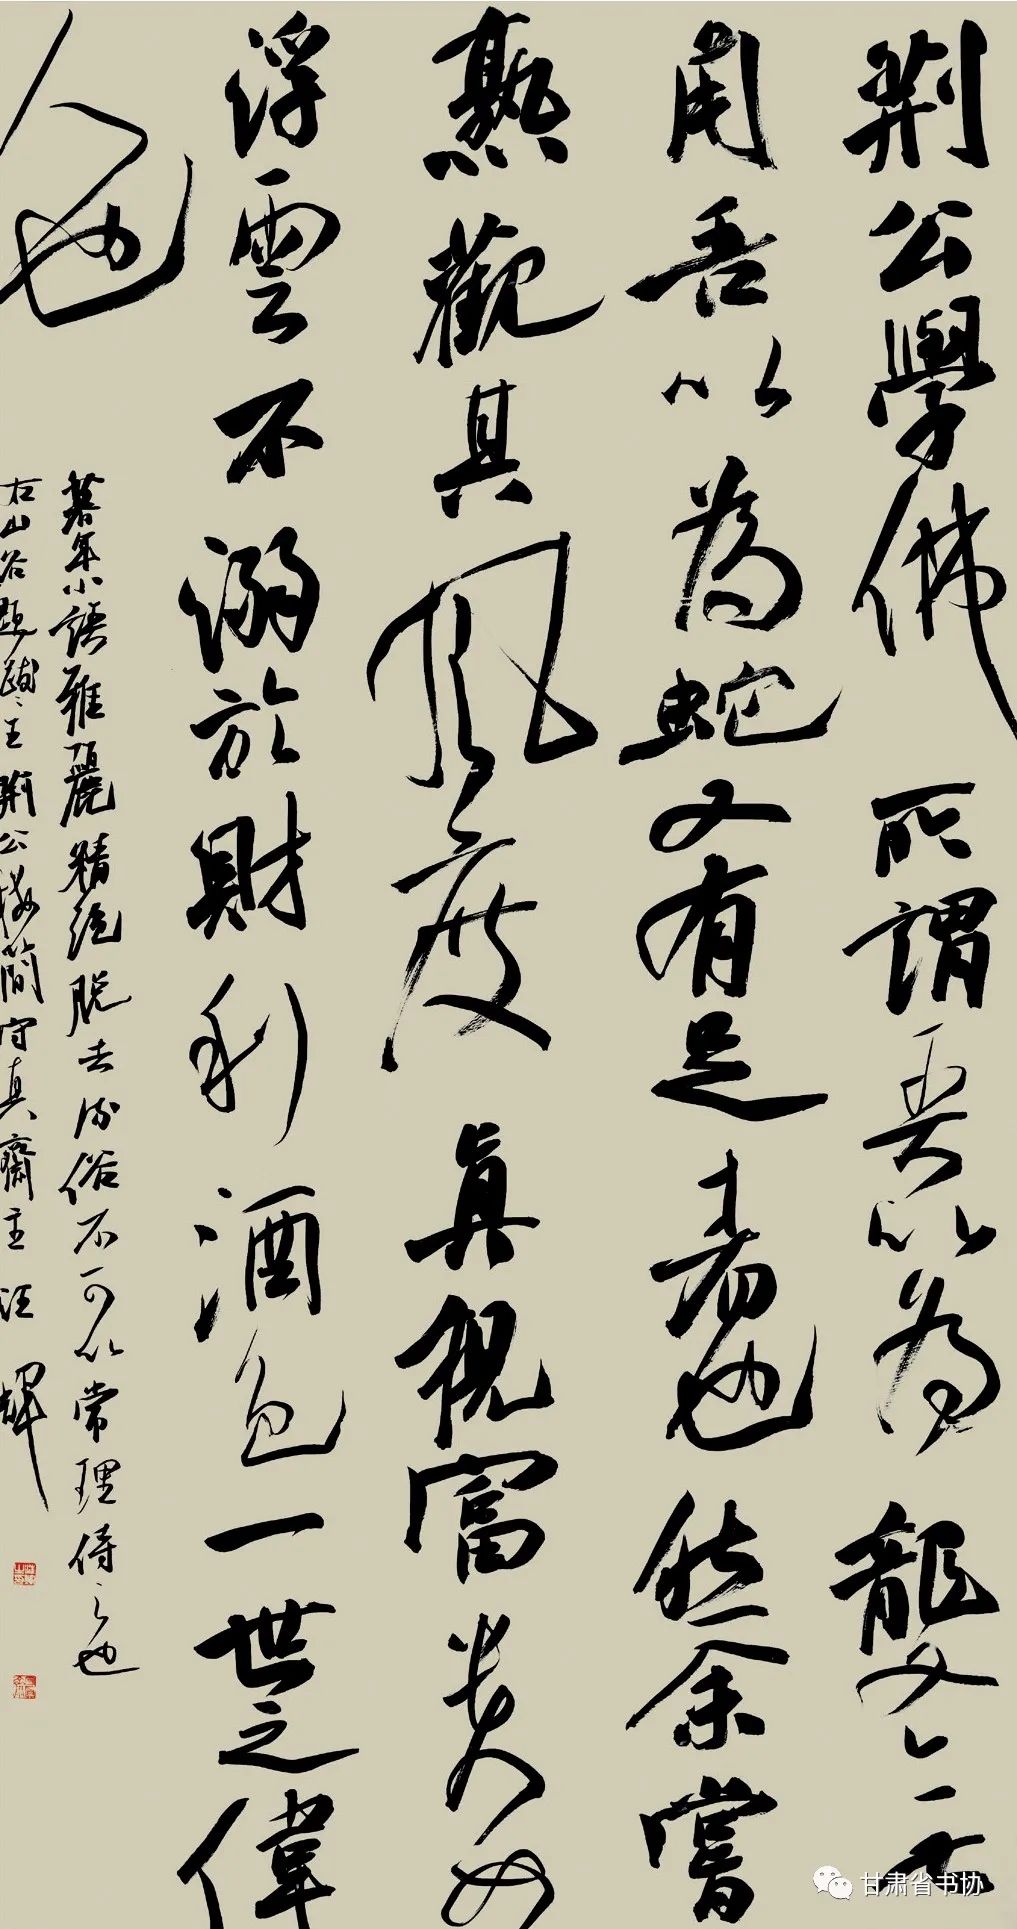 荆公學佛所謂吾以為龍又無
角吾以為蛇又有足者也然余嘗
熟觀其風度真視富貴如
浮雲不溺於財利酒色一世之偉
人也
暮年小語雅麗精絕脫去流俗不可以常理待之也
右山谷題跋王荆公禪簡守真齋主汪輝
甘肃省书协